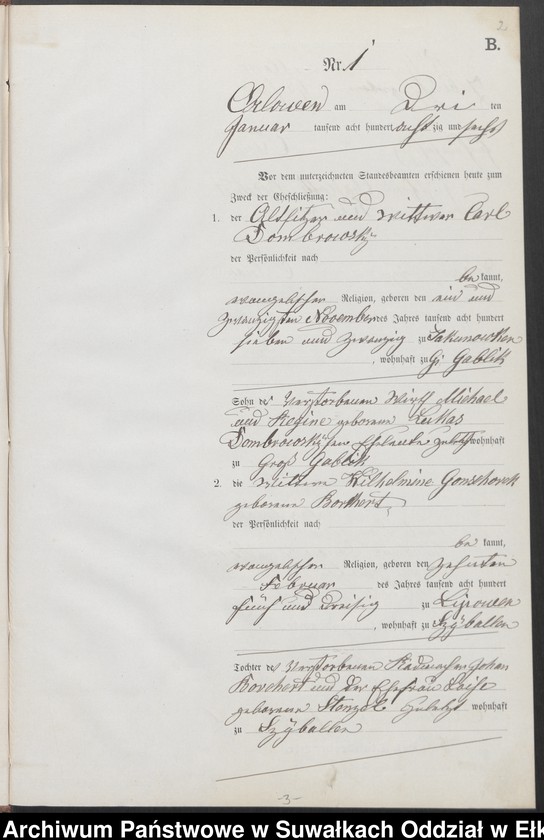 2.
B.
Nr. 1
Orlowen am Dri ten
Januar tausend acht hundert acht zig und sechs
Vor dem unterzeichneten Standesbeamten erschienen heute zum
Zweck der Eheschließung:
1. der Altsitzer und Wittwer Carl
Dombrowsky
der Persönlichkeit nach
be kannt,
evangelischer Religion, geboren den ein und
zwanzigsten November des Jahres tausend acht hundert
sieben und zwanzig zu Jakunowken
, wohnhaft zu Gr Gablik
Sohn des verstorbenen Wirth Michael
und Regine geborene Lukas
Dombrowsky'schen Eheleute zuletzt wohnhaft
zu Groß Gablik
2. die Wittwe Wilhelmine Gonschorek
geborene Borchert,
der Persönlichkeit nach
be kannt,
evangelischer Religion, geboren den zehnten
Februar des Jahres tausend acht hundert
fünf und dreißig zu Lipowen
, wohnhaft zu Szÿballen
Tochter des verstorbenen Radmacher Johan
Borchert und der Ehefrau Loise
geborene Stenzel zuletzt wohnhaft
zu Szÿballen
-3-
Archiwum Państwowe w Suwałkach Oddział w Ełk